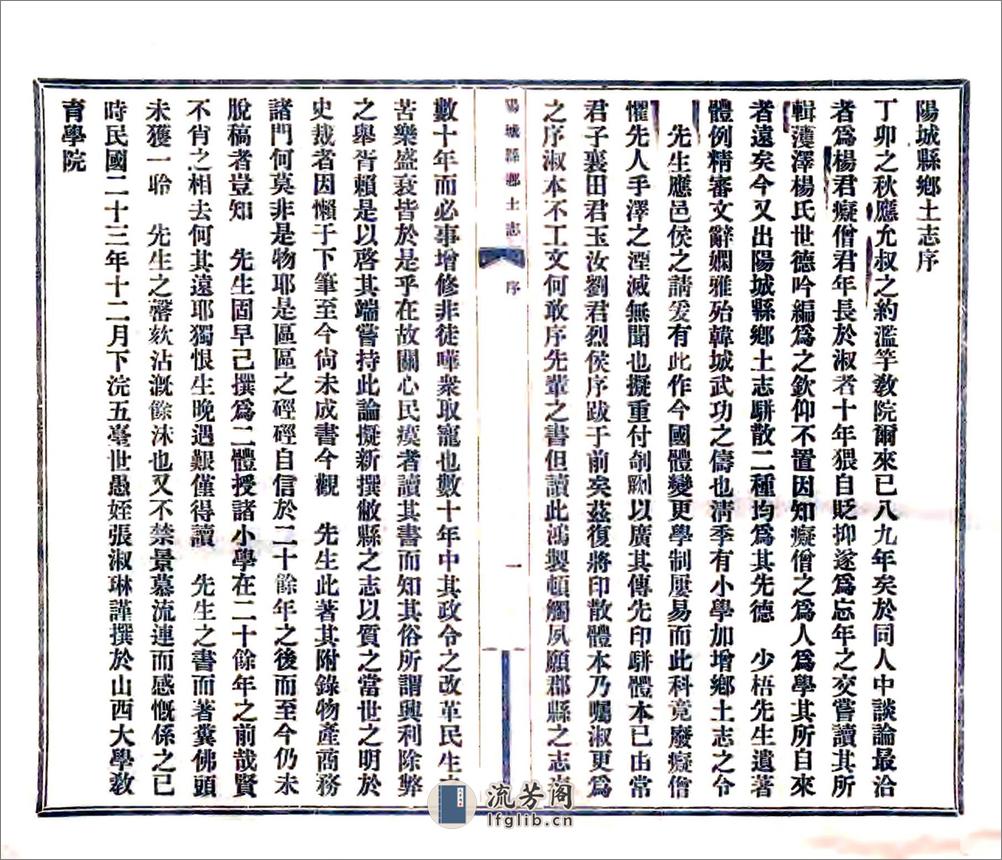 陽城縣鄉土志序
丁卯之秋應允叔之約濫竽敎院爾來已八九年矣於同人中談論最洽
者爲楊君癡僧君年長於淑者十年猥自貶抑遂爲忘年之交嘗讀其所
輯濩澤楊氏世德吟編爲之欽仰不置因知癡僧之爲人爲學其所自來
者遠矣今又出陽城縣鄉土志駢散二種均爲其先德　少梧先生遺著
體例精審文辭嫻雅殆韓城武功之儔也淸季有小學加增鄉土志之令
　先生應邑侯之請爰有此作今國體變更學制屢易而此科竟廢癡僧
懼先人手澤之湮滅無聞也擬重付剞劂以廣其傳先印駢體本已由常
君子襄田君玉汝劉君烈侯序跋于前矣茲復將印散體本乃囑淑更爲
之序淑本不工文何敢序先輩之書但讀此鴻製頓觸夙願郡縣之志
陽城縣鄉土志　序　一
數十年而必事增修非徒嘩衆取寵也數十年中其政令之改革民生
苦樂盛衰皆於是乎在故關心民瘼者讀其書而知其俗所謂興利除弊
之舉胥賴是以啓其端嘗持此論擬新撰敝縣之志以質之當世之明於
史裁者因懶于下筆至今尙未成書今觀　先生此著其附錄物產商務
諸門何莫非是物耶是區區之硜硜自信於二十餘年之後而至今仍未
脫稿者豈知　先生固早已撰爲二體授諸小學在二十餘年之前哉賢
不肖之相去何其遠耶獨恨生晚遇艱僅得讀　先生之書而著糞佛頭
未獲一聆　先生之謦欬沾漑餘沫也又不禁景慕流連而感慨係之已
時民國二十三年十二月下浣五臺世愚姪張淑琳謹撰於山西大學敎
育學院
流芳阁
lfglib.cn